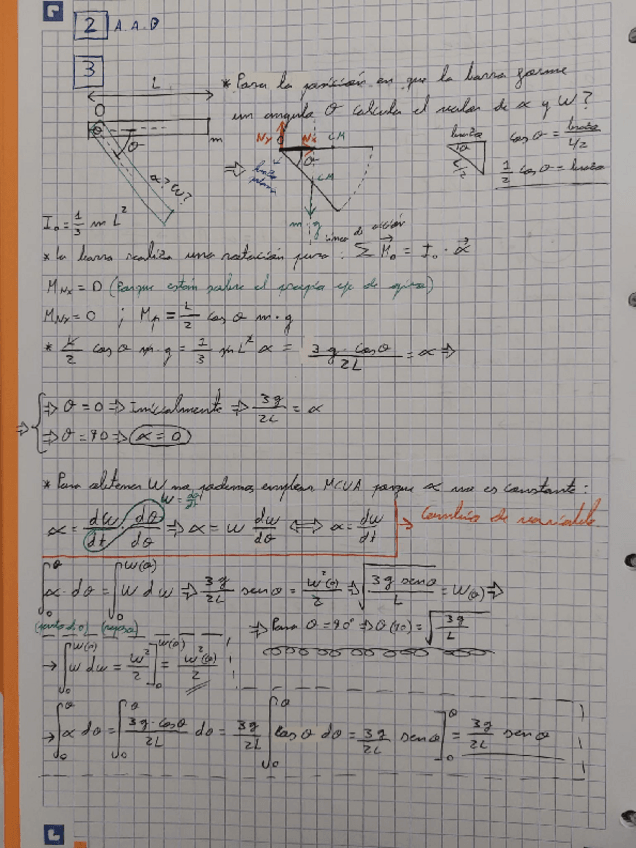 2 A.A.D
3
* Para la posición en que la barra forme
un angulo θ calcula el valor de α y W?
L
O
θ
m
α? W?
Nx
CM
θ
CM
m·g
línea de acción
brazo
θ
L/2
cos θ = brazo / L/2
1/2 cos θ = brazo
I₀ = 1/3 m L²
* la barra realiza una rotación pura: Σ M₀ = I₀ · α
M_Nx = 0 (Porque están sobre el propio eje de giro)
M_Nx = 0 ; Mp = L/2 cos θ m·g
* L/2 cos θ m·g = 1/3 m L² α = 3g·cosθ / 2L = α ⇒
⇒ { ⇒ θ = 0 ⇒ Inicialmente ⇒ 3g/2L = α
⇒ θ = 90 ⇒ α = 0
* Para obtener W no podemos emplear MCUA porque α no es constante:
W = dθ/dt
α = dW/dt · dθ/dθ ⇒ α = W dW/dθ ⇔ α = dW/dt → Cambio de variable
∫₀^θ α·dθ = ∫₀^W(θ) W dW ⇒ 3g/2L senθ = W²(θ)/2 ⇒ √(3g senθ / L) = W(θ) ⇒
(reposo)
⇒ Para θ = 90° ⇒ θ(90) = √(3g/L)
→ ∫₀^W(θ) W dW = W²/2 ]₀^W(θ) = W²(θ)/2
→ ∫₀^θ α dθ = ∫₀^θ 3g·cosθ/2L dθ = 3g/2L ∫₀^θ cos θ dθ = 3g/2L senθ ]₀^θ = 3g/2L sen θ